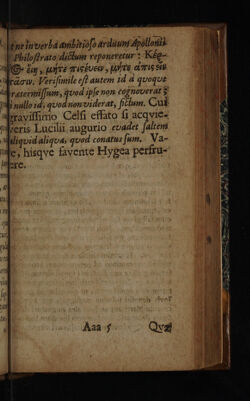 et ne in verba ambitioso arduum Apollonii
Philostrato dictum reponeretur : Κέρ-
δ۞ εἴη, μήτε πιςέυειν, μήτε ἀπιςεῖν
Verisimile est autem id a quoque
prætermissum, quod ipse non cognoverat;
nullo id, quod non viderat, fictum. Cui
gravissimo Celsi effato si acqvie-
veris Lucilii augurio evadet saltem
aliquid aliqua, quod conatus sum. Va-
le, hisqve favente Hygea perfru-
ere.
Aaa 5
Qvæ